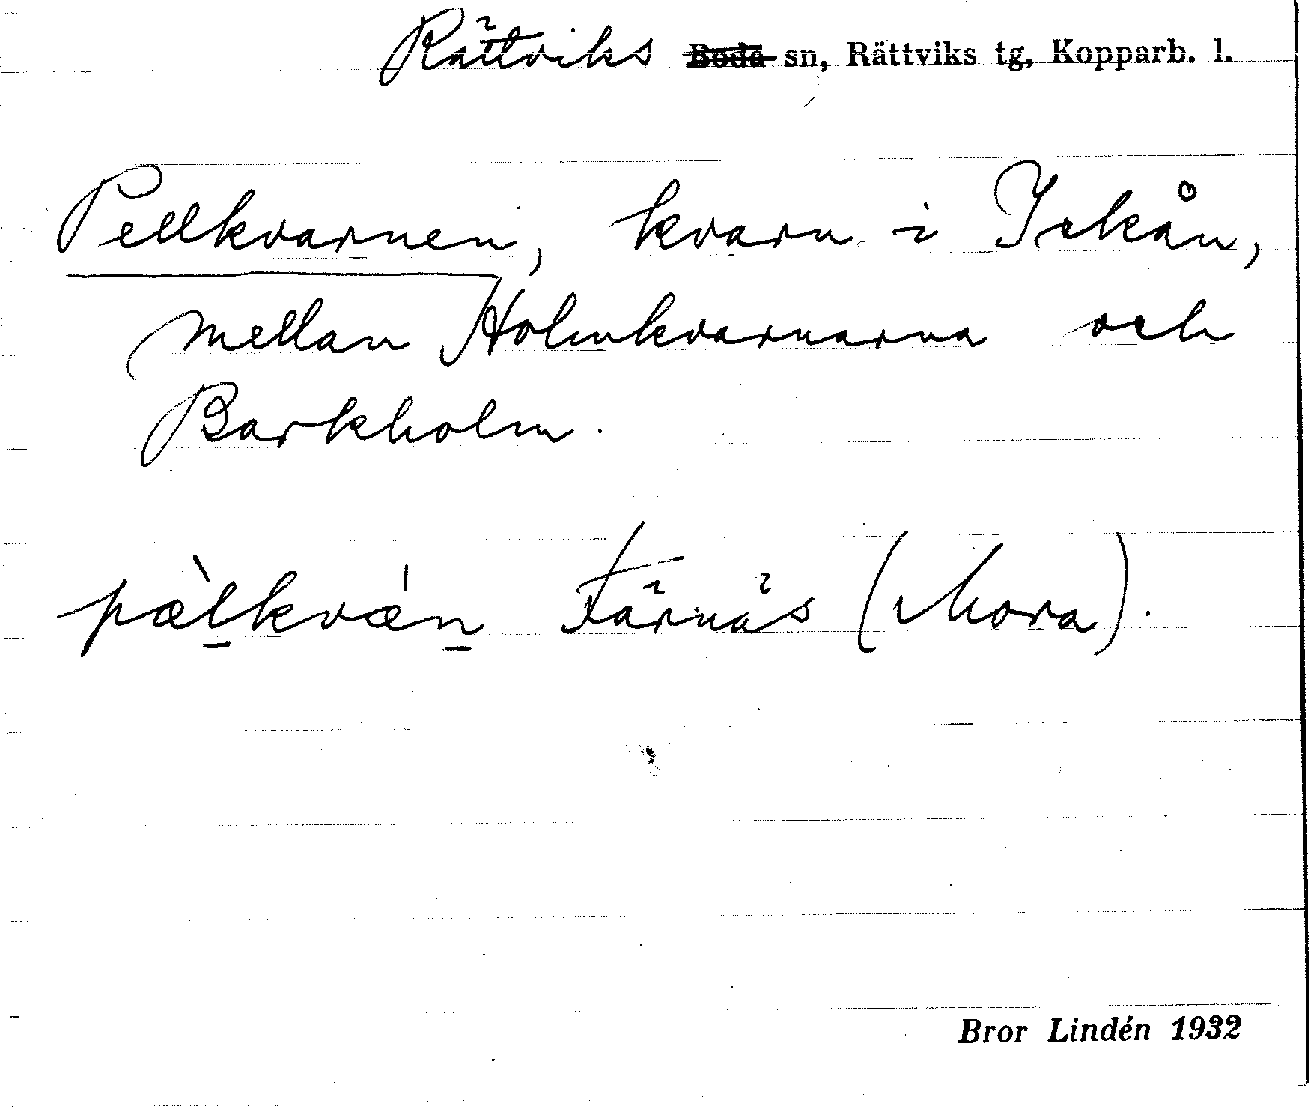 Rättviks Boda sn, Rättviks tg, Kopparb. l.
Pellkvarnen, kvarn i Ickån,
mellan Holmkvarnarna och
Barkholm.
pæ̀l̲kván̲ Färnäs (Mora).
Bror Lindén 1932